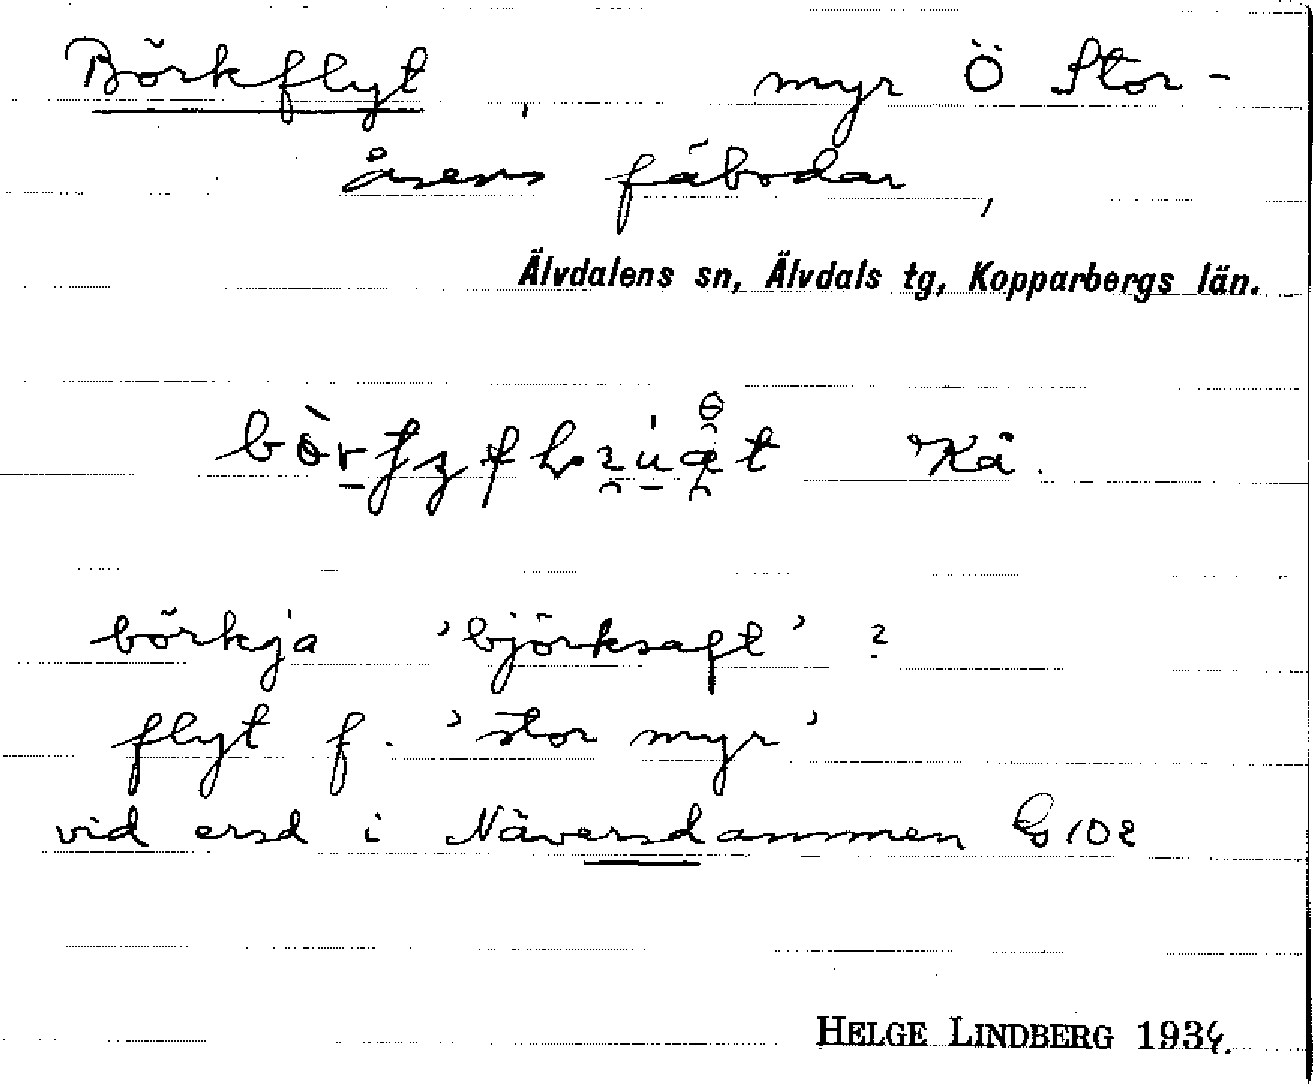 Börkflyt, myr Ö Stor-
åsens fäbodar,
Älvdalens sn, Älvdals tg, Kopparbergs län.
Kä.
börkja 'björksaft' ?
flyt f. 'stor myr'
vid ersd i Näversdammen G 102
HELGE LINDBERG 1934.